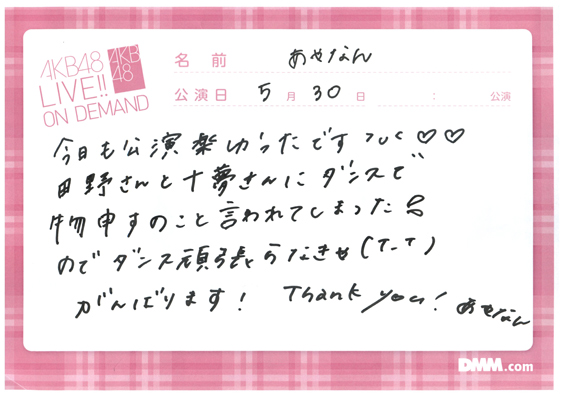 AKB48
LIVE!!
ON DEMAND
AKB
48
名前 あやなん
公演日 5月30日 : 公演
今日も公演楽しかったです ♡♡
田野さんと十夢さんにダンスで
物申すのこと言われてしまった
のでダンス頑張らなきゃ(T-T)
がんばります! Thank you! あやなん
DMM.com